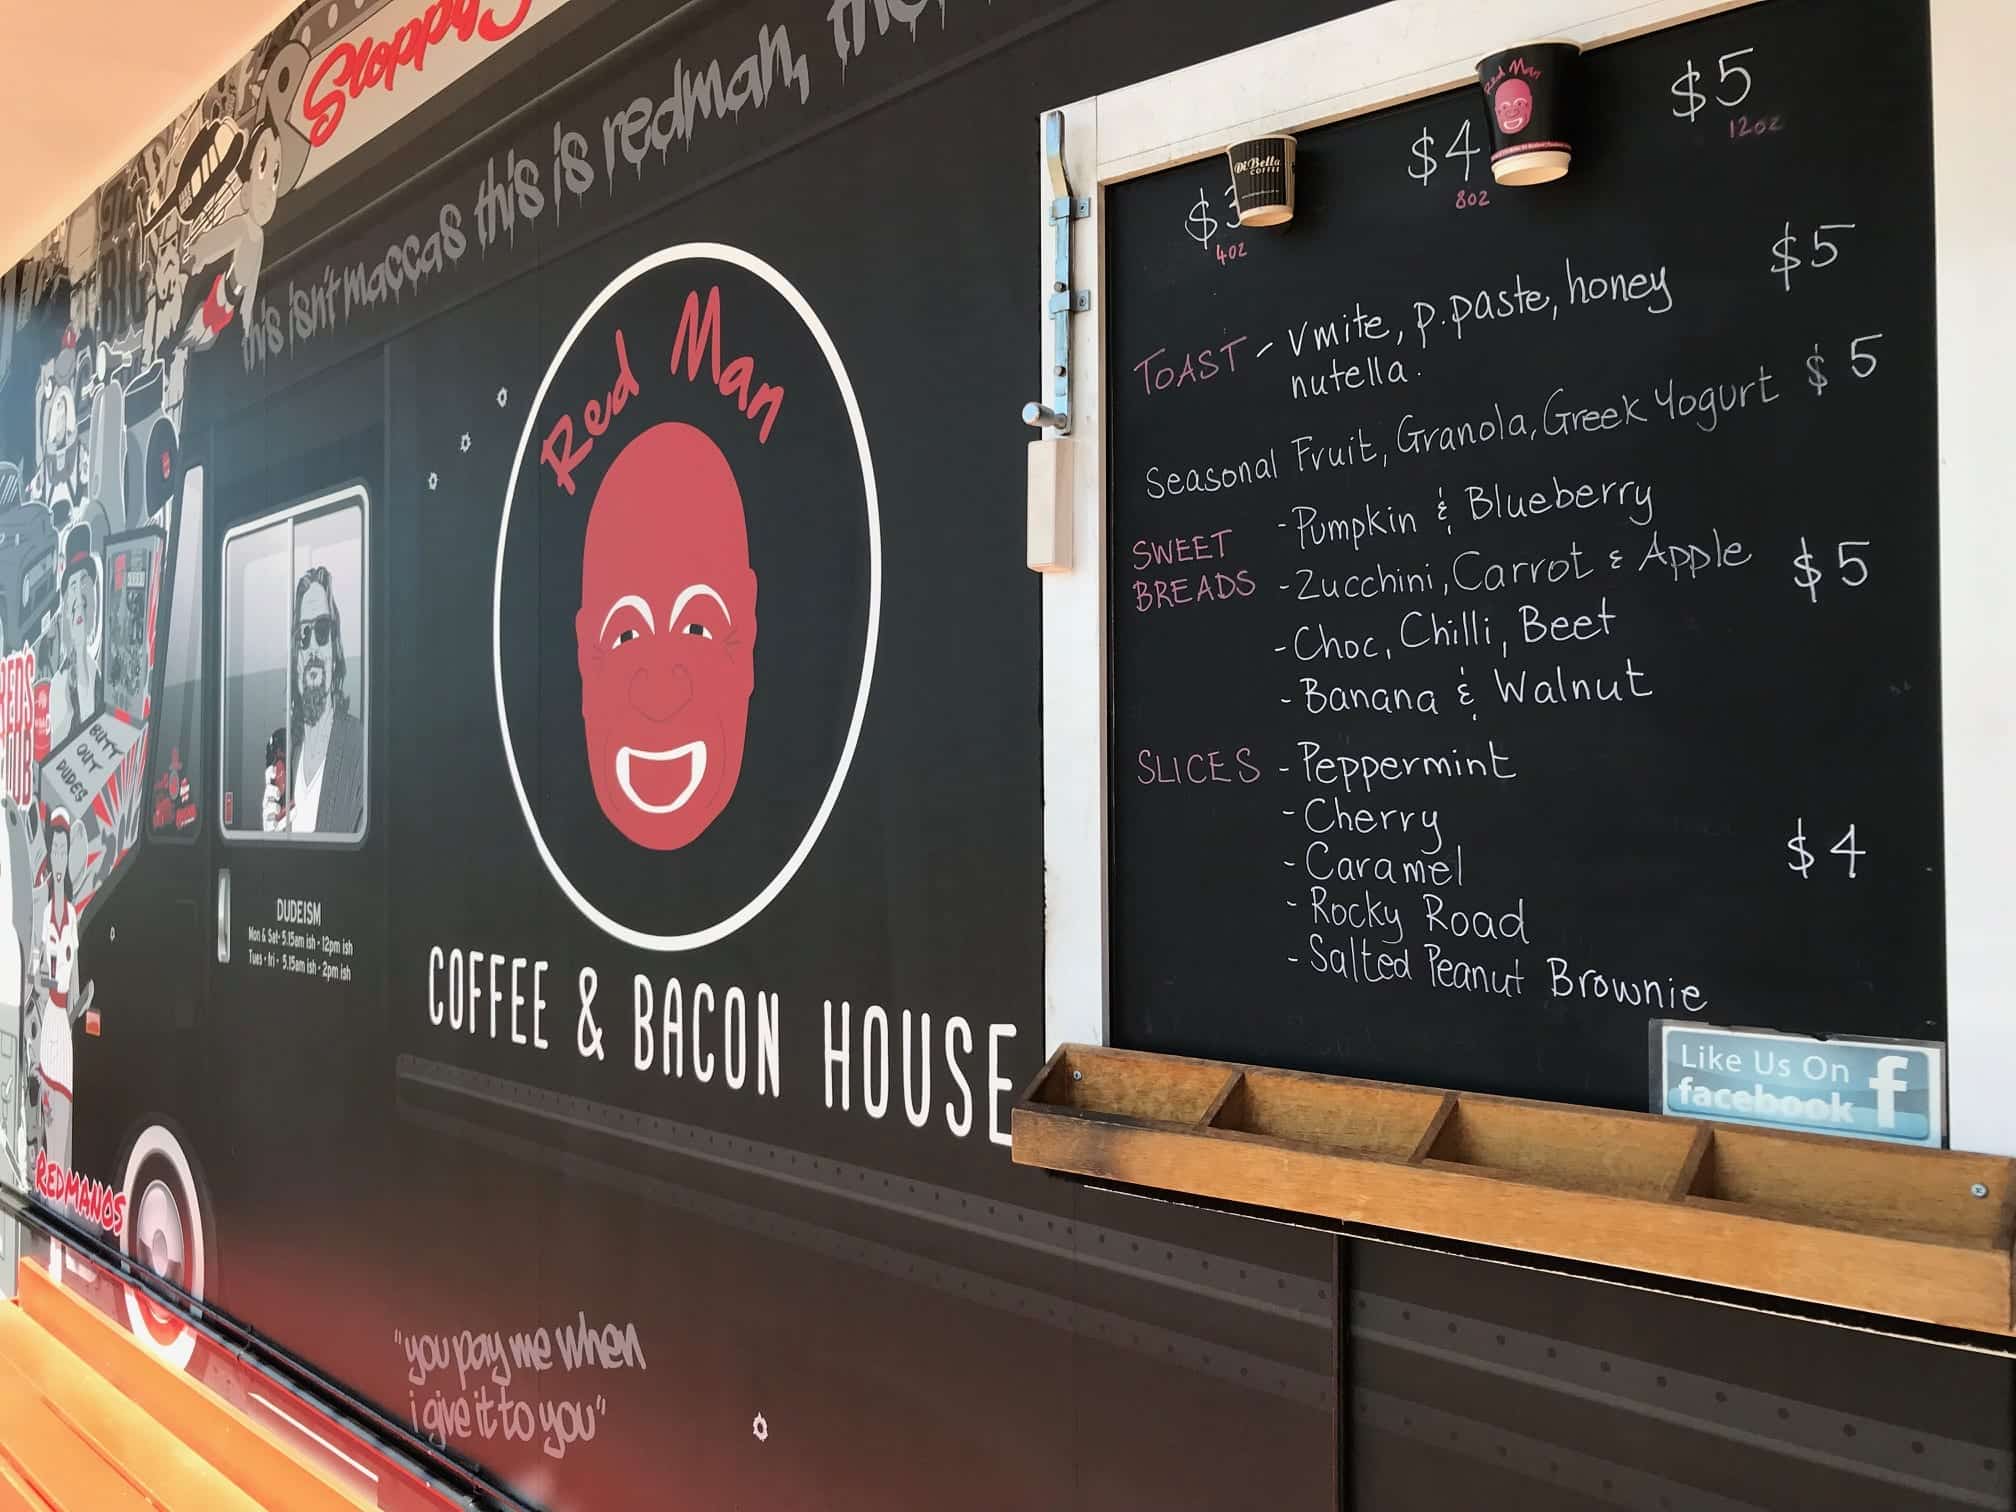 Sloppy
this isn't maccas this is redman,
Red Man
COFFEE & BACON HOUSE
DUDEISM
Mon & Sat- 5.15am ish - 12pm ish
Tues - fri - 5.15am ish - 2pm ish
BUTT
OUT
DUDES
REDMANOS
"you pay me when
i give it to you"
Di Bella
COFFEE
Red Man
$3
4oz
$4
8oz
$5
12oz
TOAST - Vmite, p.paste, honey $5
nutella.
Seasonal Fruit, Granola, Greek Yogurt $5
SWEET BREADS
- Pumpkin & Blueberry
- Zucchini, Carrot & Apple $5
- Choc, Chilli, Beet
- Banana & Walnut
SLICES - Peppermint
- Cherry
- Caramel $4
- Rocky Road
- Salted Peanut Brownie
Like Us On
facebook
f